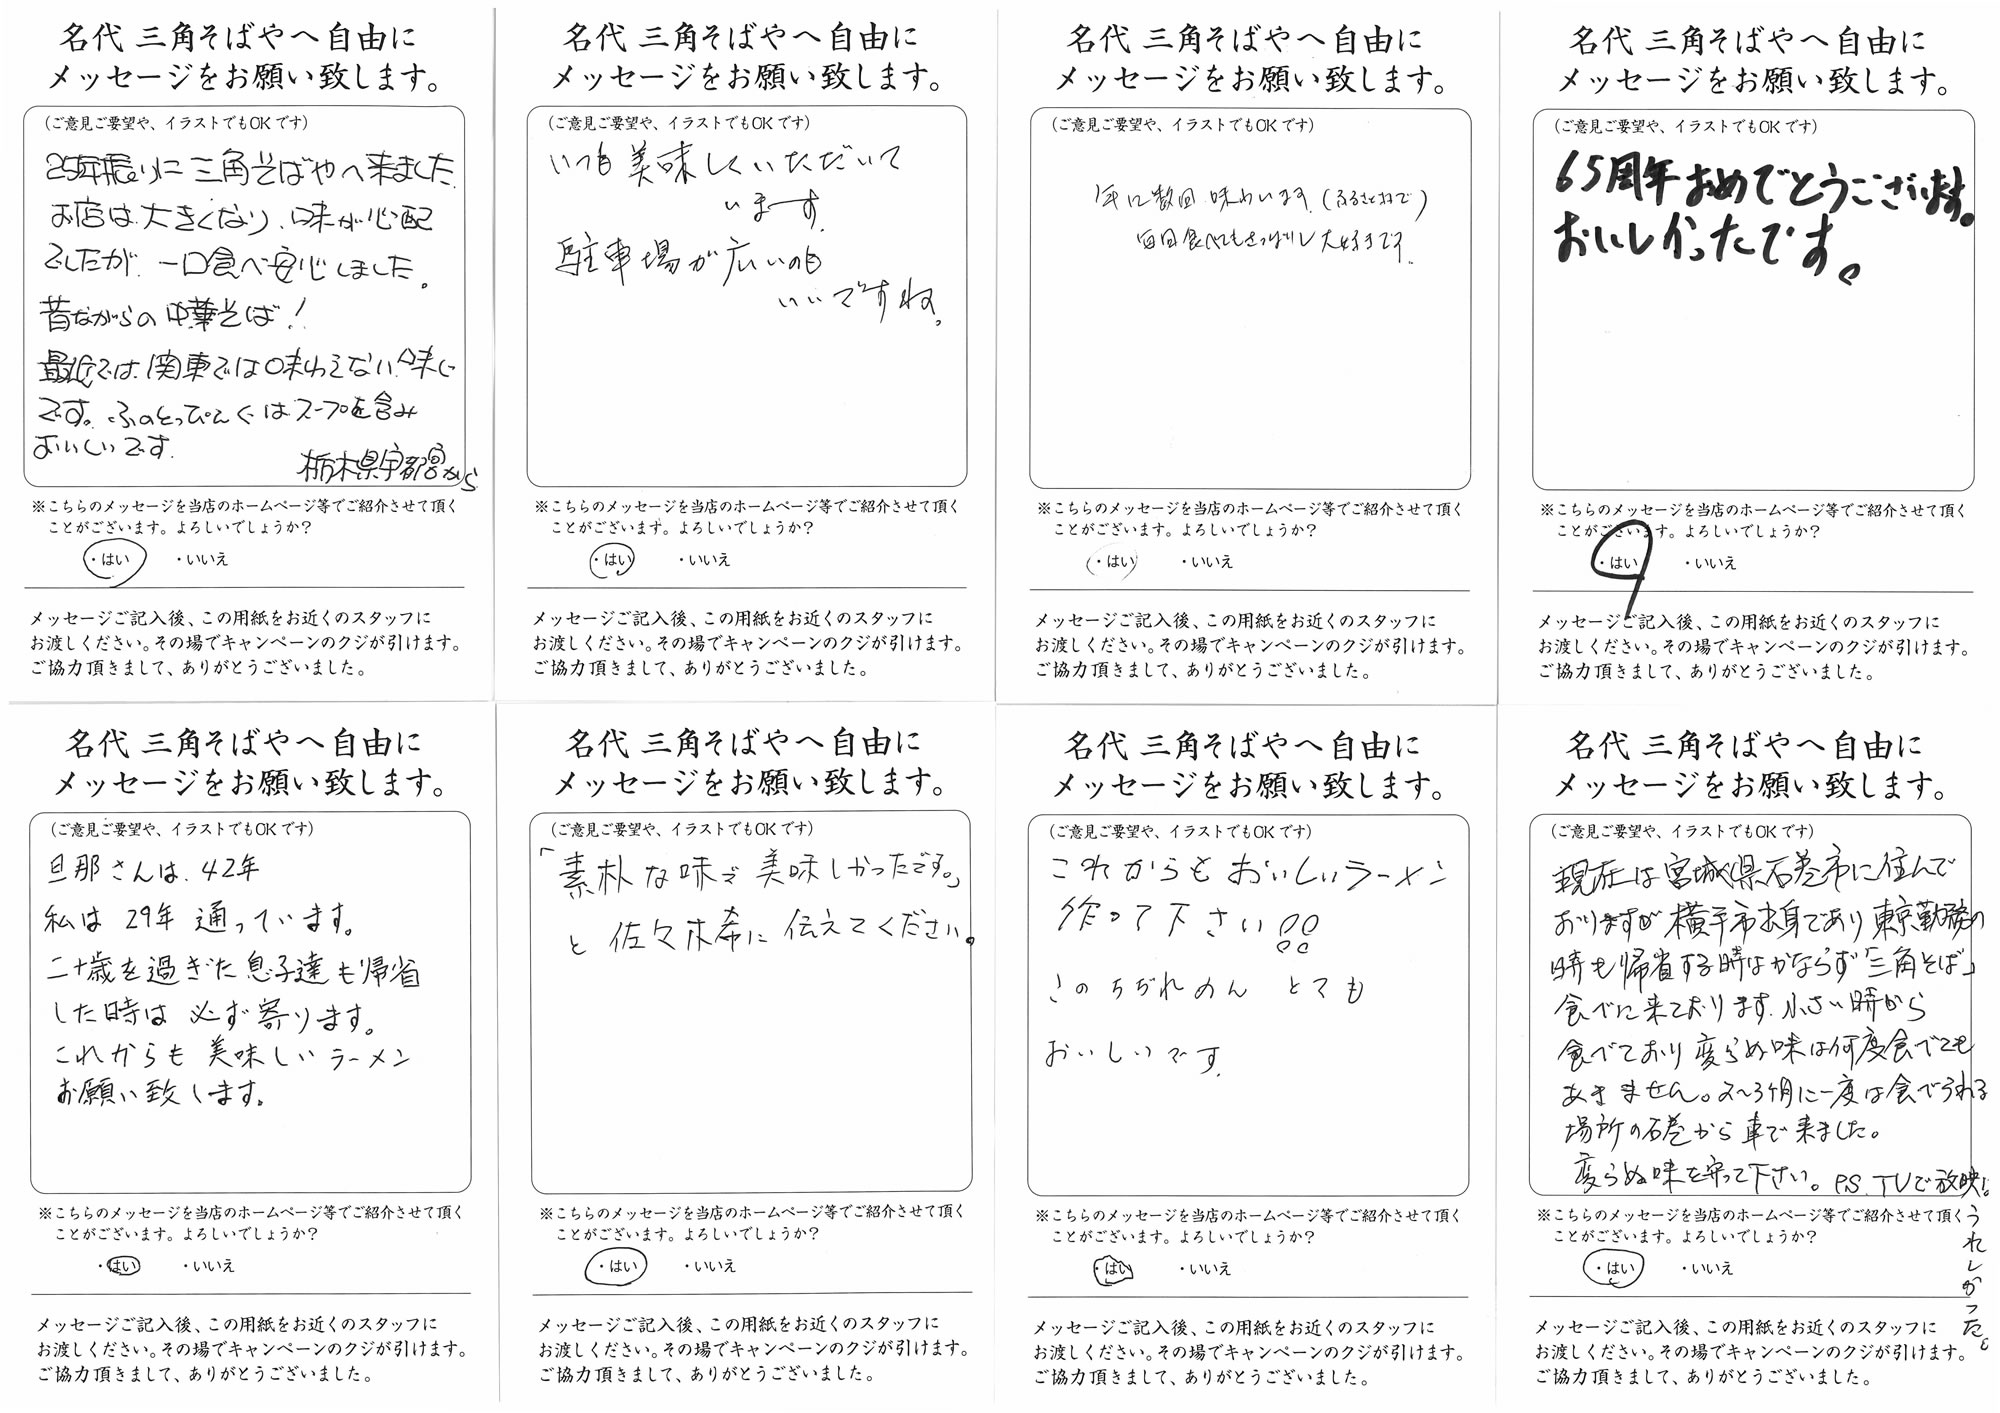 名代 三角そばやへ自由に
メッセージをお願い致します。
(ご意見ご要望や、イラストでもOKです)
25年振りに三角そばやへ来ました。
お店は大きくなり、味が心配
でしたが、一口食べ安心しました。
昔ながらの中華そば！
最近では関東では味わえない味
です。ふのとっぴんぐはスープを含み
おいしいです。
栃木県宇都宮から
※こちらのメッセージを当店のホームページ等でご紹介させて頂く
ことがございます。よろしいでしょうか？
・はい ・いいえ
メッセージご記入後、この用紙をお近くのスタッフに
お渡しください。その場でキャンペーンのクジが引けます。
ご協力頂きまして、ありがとうございました。
名代 三角そばやへ自由に
メッセージをお願い致します。
(ご意見ご要望や、イラストでもOKです)
いつも美味しくいただいて
います。
駐車場が広いのも
いいですね。
※こちらのメッセージを当店のホームページ等でご紹介させて頂く
ことがございます。よろしいでしょうか？
・はい ・いいえ
メッセージご記入後、この用紙をお近くのスタッフに
お渡しください。その場でキャンペーンのクジが引けます。
ご協力頂きまして、ありがとうございました。
名代 三角そばやへ自由に
メッセージをお願い致します。
(ご意見ご要望や、イラストでもOKです)
年に数回味わいます。(ふるさと村で)
毎回食べてもさっぱりし大好きです。
※こちらのメッセージを当店のホームページ等でご紹介させて頂く
ことがございます。よろしいでしょうか？
・はい ・いいえ
メッセージご記入後、この用紙をお近くのスタッフに
お渡しください。その場でキャンペーンのクジが引けます。
ご協力頂きまして、ありがとうございました。
名代 三角そばやへ自由に
メッセージをお願い致します。
(ご意見ご要望や、イラストでもOKです)
65周年おめでとうございます。
おいしかったです。
※こちらのメッセージを当店のホームページ等でご紹介させて頂く
ことがございます。よろしいでしょうか？
・はい ・いいえ
メッセージご記入後、この用紙をお近くのスタッフに
お渡しください。その場でキャンペーンのクジが引けます。
ご協力頂きまして、ありがとうございました。
名代 三角そばやへ自由に
メッセージをお願い致します。
(ご意見ご要望や、イラストでもOKです)
旦那さんは、42年
私は 29年 通っています。
二十歳を過ぎた息子達も帰省
した時は 必ず寄ります。
これからも 美味しいラーメン
お願い致します。
※こちらのメッセージを当店のホームページ等でご紹介させて頂く
ことがございます。よろしいでしょうか？
・はい ・いいえ
メッセージご記入後、この用紙をお近くのスタッフに
お渡しください。その場でキャンペーンのクジが引けます。
ご協力頂きまして、ありがとうございました。
名代 三角そばやへ自由に
メッセージをお願い致します。
(ご意見ご要望や、イラストでもOKです)
「素朴な味で 美味しかったです。」
と 佐々木希に 伝えてください。
※こちらのメッセージを当店のホームページ等でご紹介させて頂く
ことがございます。よろしいでしょうか？
・はい ・いいえ
メッセージご記入後、この用紙をお近くのスタッフに
お渡しください。その場でキャンペーンのクジが引けます。
ご協力頂きまして、ありがとうございました。
名代 三角そばやへ自由に
メッセージをお願い致します。
(ご意見ご要望や、イラストでもOKです)
これからも おいしいラーメン
作って下さい!!
このちぢれめん とても
おいしいです。
※こちらのメッセージを当店のホームページ等でご紹介させて頂く
ことがございます。よろしいでしょうか？
・はい ・いいえ
メッセージご記入後、この用紙をお近くのスタッフに
お渡しください。その場でキャンペーンのクジが引けます。
ご協力頂きまして、ありがとうございました。
名代 三角そばやへ自由に
メッセージをお願い致します。
(ご意見ご要望や、イラストでもOKです)
現在は宮城県石巻市に住んで
おりますが横手市出身であり東京勤務の
時も帰省する時はかならず「三角そば」
食べに来ております。小さい時から
食べており変らぬ味は何度食べても
あきません。2〜3ヶ月に一度は食べうれる
場所の石巻から車で来ました。
変らぬ味を守って下さい。P.S. TVで放映!。
うれしかった。
※こちらのメッセージを当店のホームページ等でご紹介させて頂く
ことがございます。よろしいでしょうか？
・はい ・いいえ
メッセージご記入後、この用紙をお近くのスタッフに
お渡しください。その場でキャンペーンのクジが引けます。
ご協力頂きまして、ありがとうございました。